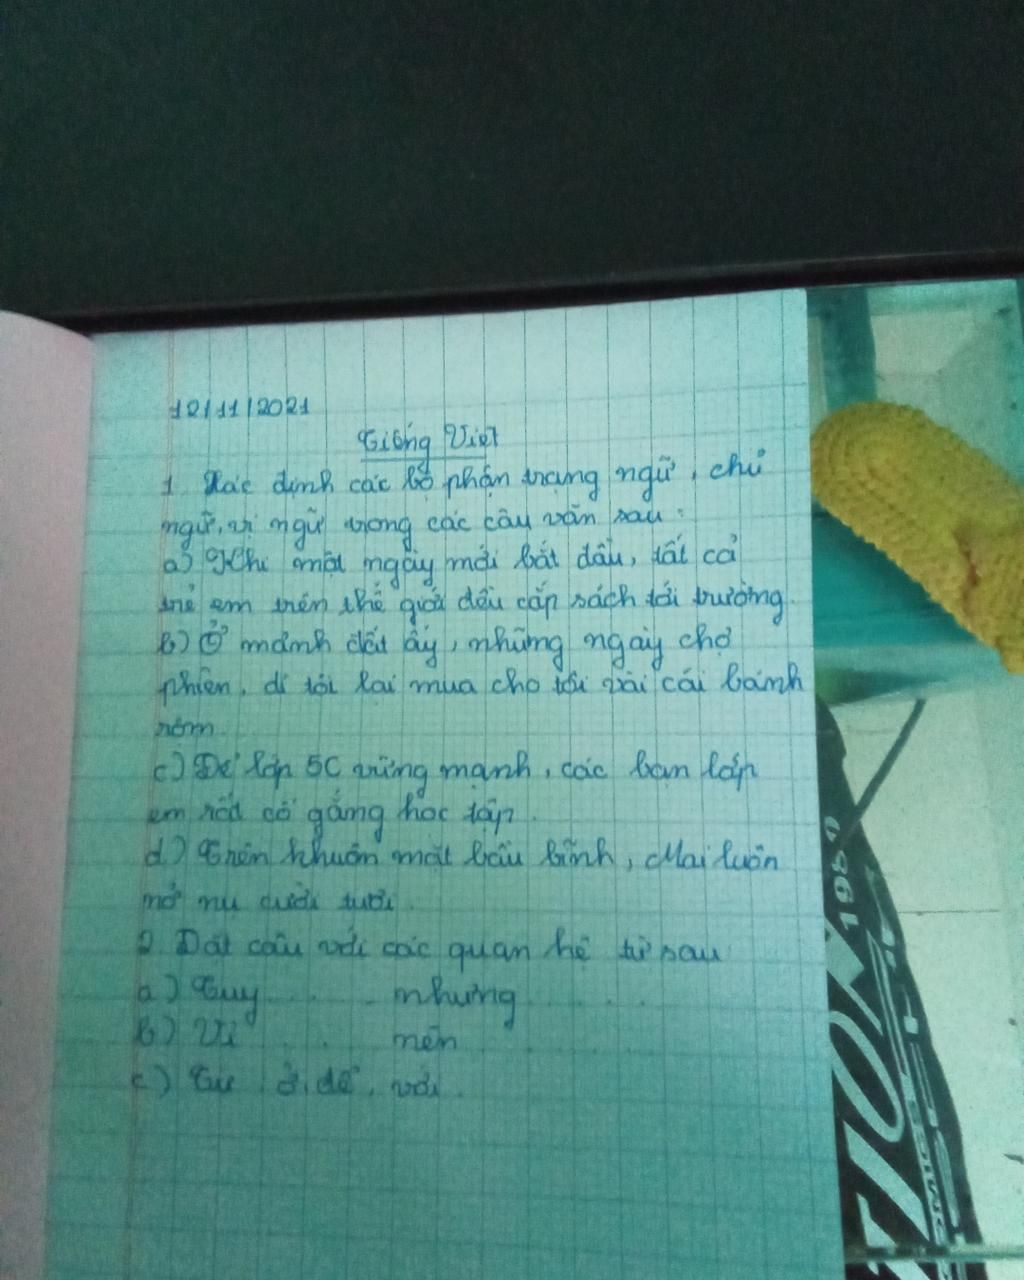 12/11/2021
Tiếng Việt
1. Xác định các bộ phận trạng ngữ, chủ
ngữ, vị ngữ trong các câu văn sau:
a) Khi một ngày mới bắt đầu, tất cả
trẻ em trên thế giới đều cắp sách tới trường.
b) Ở mảnh đất ấy, những ngày chợ
phiên, dì tôi lại mua cho tôi vài cái bánh
rợm.
c) Để lớp 5C vững mạnh, các bạn lớp
em rất cố gắng học tập.
d) Trên khuôn mặt bầu bĩnh, Mai luôn
nở nụ cười tươi.
2. Đặt câu với các quan hệ từ sau
a) Tuy .... nhưng ....
b) Vì .... nên ....
c) Từ, ở, để, với.
1980